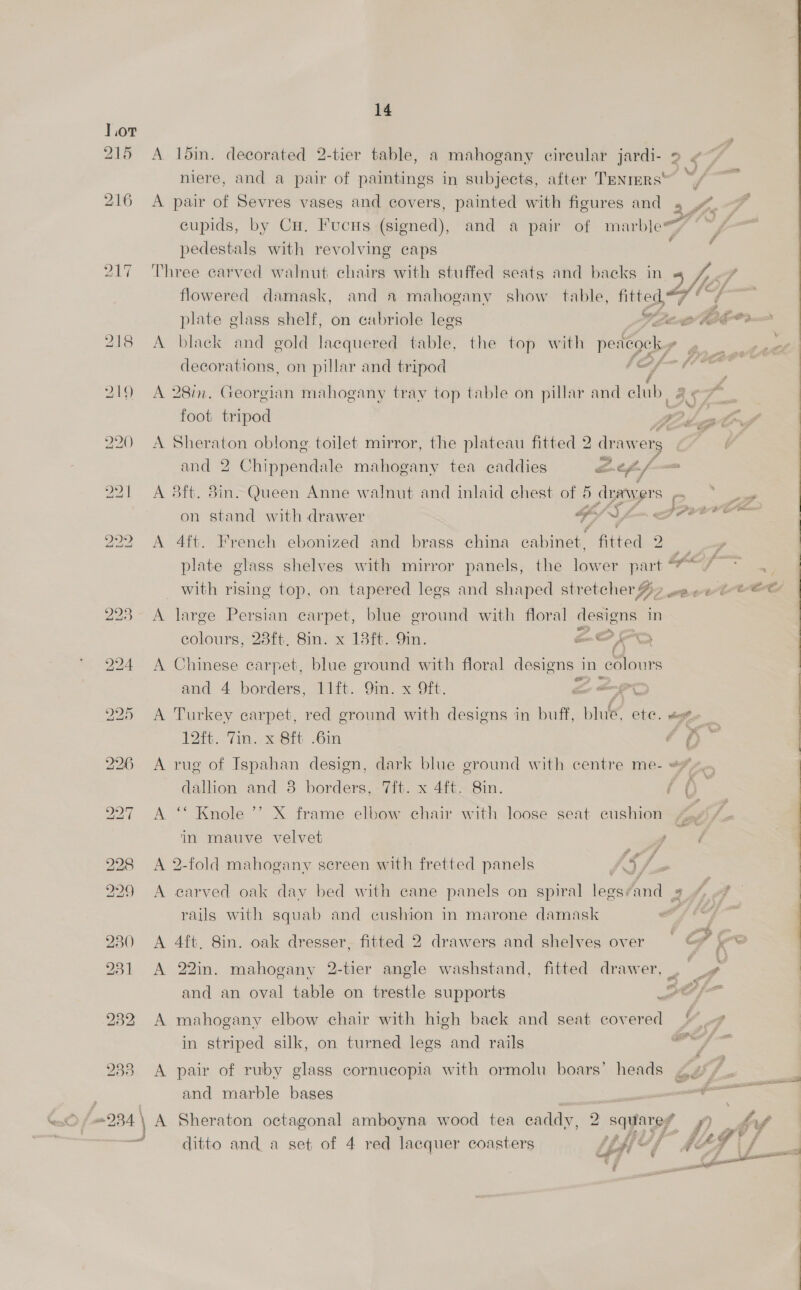 14
Lot
215 A 15in. decorated 2-tier table, a mahogany circular jardi-
niere, and a pair of paintings in subjects, after TENIERS
216 A pair of Sevres vases and covers, painted with figures and
cupids, by CH. FUCHS (signed), and a pair of marble
pedestals with revolving caps
217 Three carved walnut chairs with stuffed seats and backs in
flowered damask, and a mahogany show table, fitted
plate glass shelf, on cabriole legs
218 A black and gold lacquered table, the top with peacock
decorations, on pillar and tripod
219 A 28in. Georgian mahogany tray top table on pillar and club
foot tripod
220 A Sheraton oblong toilet mirror, the plateau fitted 2 drawers
and 2 Chippendale mahogany tea caddies
221 A 3ft. 3in. Queen Anne walnut and inlaid chest of 5 drawers
on stand with drawer
222 A 4ft. French ebonized and brass china cabinet, fitted 2
plate glass shelves with mirror panels, the lower part
with rising top, on tapered legs and shaped stretcher
223 A large Persian carpet, blue ground with floral designs in
colours, 23ft. 8in. x 13ft. 9in.
224 A Chinese carpet, blue ground with floral designs in colours
and 4 borders, 11ft. 9in. x 9ft.
225 A Turkey carpet, red ground with designs in buff, blue, etc.
12ft. 7in. x 8ft .6in
226 A rug of Ispahan design, dark blue ground with centre me-
dallion and 3 borders, 7ft. x 4ft. 8in.
227 A “ Knole ” X frame elbow chair with loose seat cushion
in mauve velvet
228 A 2-fold mahogany screen with fretted panels 15/-
229 A carved oak day bed with cane panels on spiral legs and
rails with squab and cushion in marone damask
230 A 4ft. 8in. oak dresser, fitted 2 drawers and shelves over
231 A 22in. mahogany 2-tier angle washstand, fitted drawer,
and an oval table on trestle supports
232 A mahogany elbow chair with high back and seat covered
in striped silk, on turned legs and rails
233 A pair of ruby glass cornucopia with ormolu boars’ heads
and marble bases
234 A Sheraton octagonal amboyna wood tea caddy, 2 square
ditto and a set of 4 red lacquer coasters